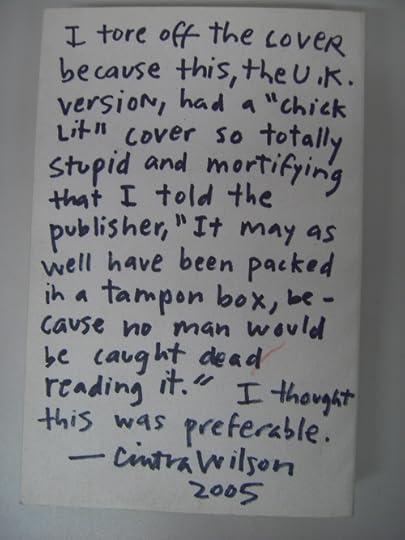 I tore off the cover
because this, the U.K.
version, had a "chick
Lit" cover so totally
stupid and mortifying
that I told the
publisher, "It may as
well have been packed
in a tampon box, be-
cause no man would
be caught dead
reading it." I thought
this was preferable.
— Cintra Wilson
2005